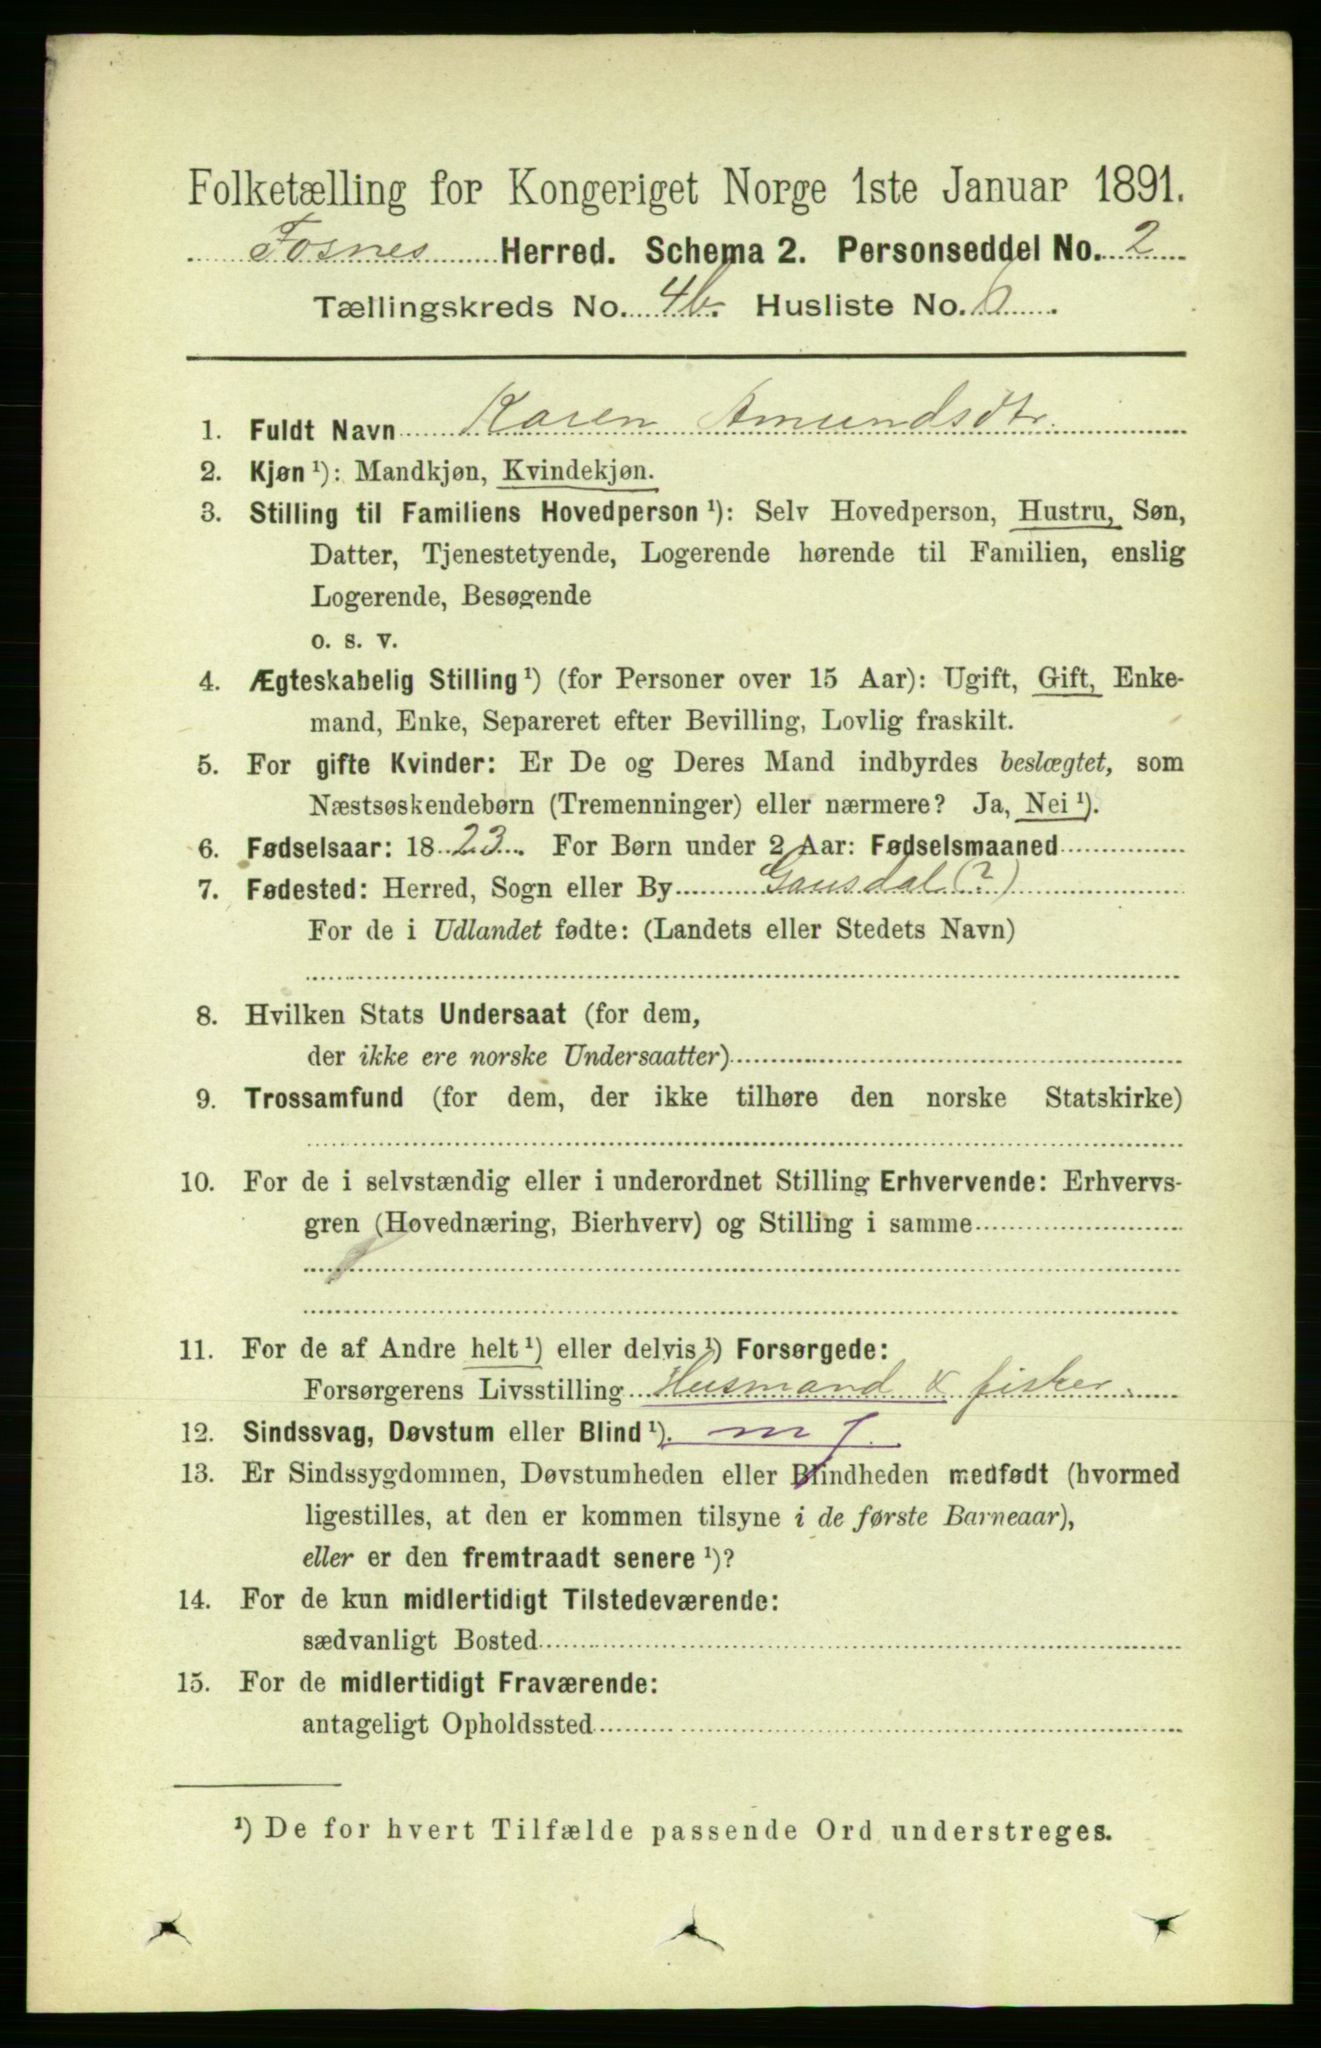 Folketælling for Kongeriget Norge 1ste Januar 1891.
Fosnes Herred. Schema 2. Personseddel No. 2
Tællingskreds No. 4b. Husliste No. 6
1. Fuldt Navn Karen Amundsdtr.
2. Kjøn ¹): Mandkjøn, Kvindekjøn.
3. Stilling til Familiens Hovedperson ¹): Selv Hovedperson, Hustru, Søn,
Datter, Tjenestetyende, Logerende hørende til Familien, enslig
Logerende, Besøgende
o. s. v.
4. Ægteskabelig Stilling ¹) (for Personer over 15 Aar): Ugift, Gift, Enke-
mand, Enke, Separeret efter Bevilling, Lovlig fraskilt.
5. For gifte Kvinder: Er De og Deres Mand indbyrdes beslægtet, som
Næstsøskendebørn (Tremenninger) eller nærmere? Ja, Nei ¹).
6. Fødselsaar: 1823. For Børn under 2 Aar: Fødselsmaaned
7. Fødested: Herred, Sogn eller By Gausdal (?)
For de i Udlandet fødte: (Landets eller Stedets Navn)
8. Hvilken Stats Undersaat (for dem,
der ikke ere norske Undersaatter)
9. Trossamfund (for dem, der ikke tilhøre den norske Statskirke)
10. For de i selvstændig eller i underordnet Stilling Erhvervende: Erhvervs-
gren (Hovednæring, Bierhverv) og Stilling i samme
11. For de af Andre helt ¹) eller delvis ¹) Forsørgede:
Forsørgerens Livsstilling Husmand & fisker.
12. Sindssvag, Døvstum eller Blind ¹).
13. Er Sindssygdommen, Døvstumheden eller Blindheden medfødt (hvormed
ligestilles, at den er kommen tilsyne i de første Barneaar),
eller er den fremtraadt senere ¹)?
14. For de kun midlertidigt Tilstedeværende:
sædvanligt Bosted
15. For de midlertidigt Fraværende:
antageligt Opholdssted
¹) De for hvert Tilfælde passende Ord understreges.